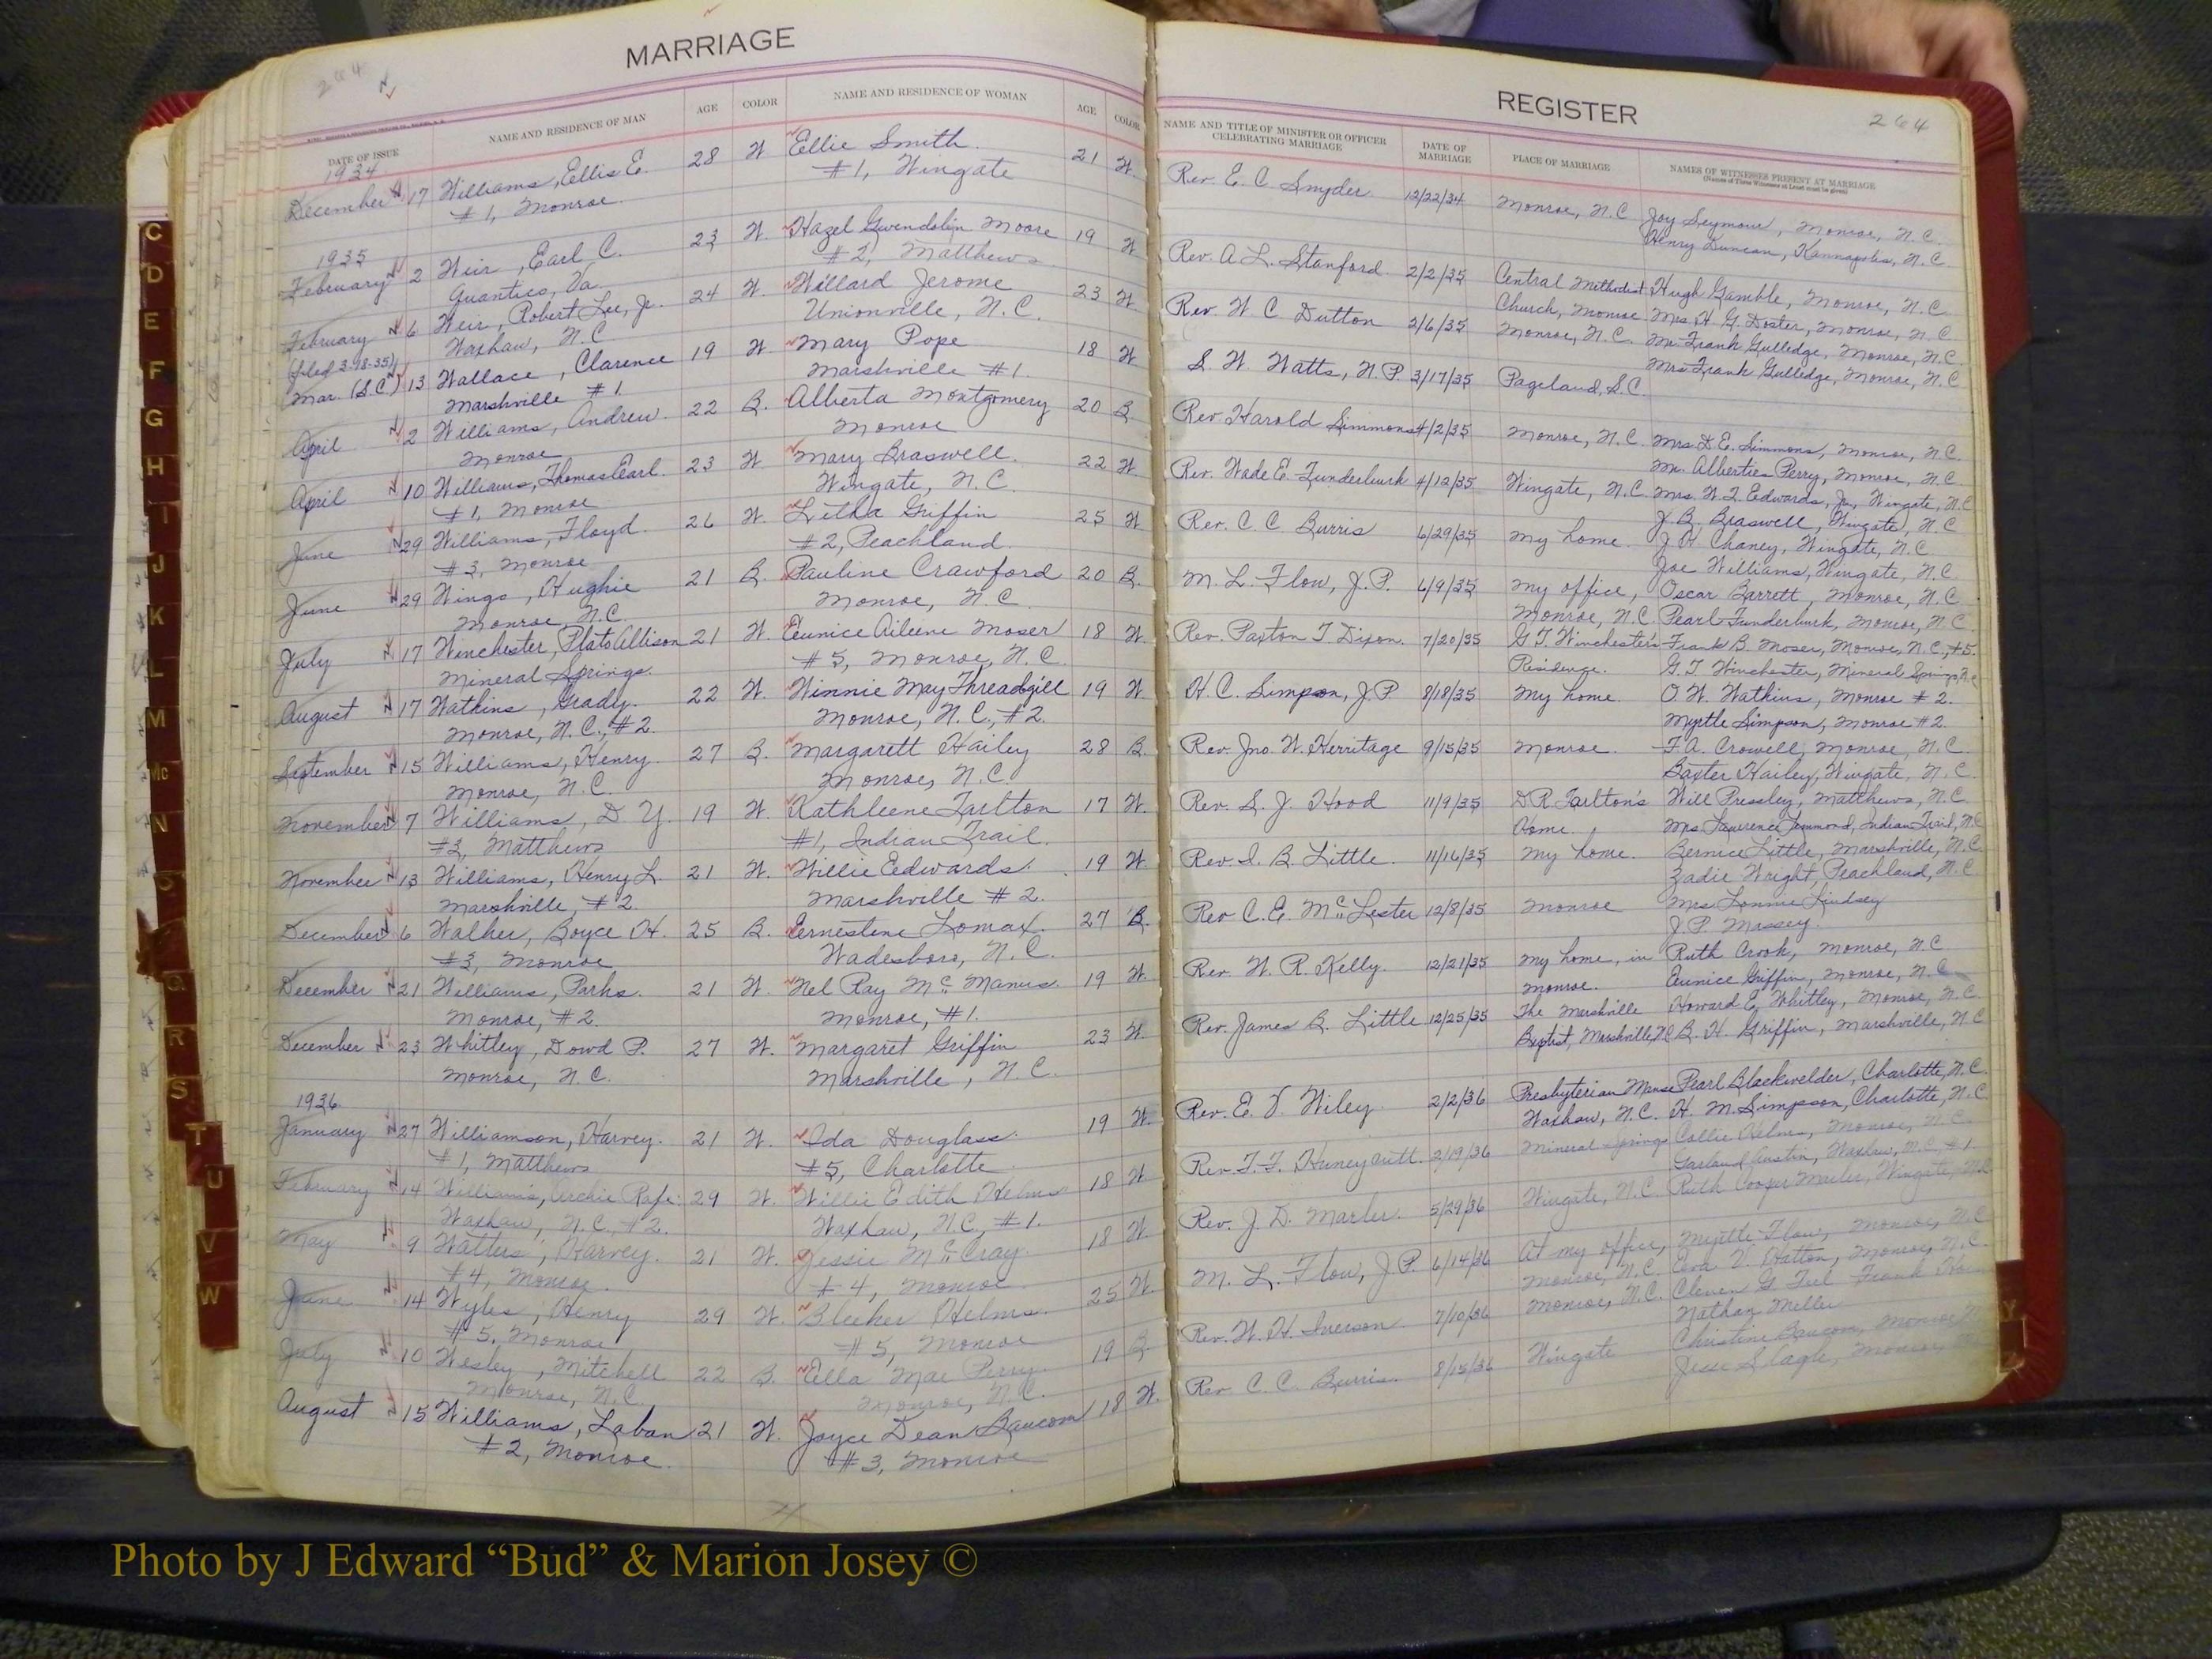 MARRIAGE
264
DATE OF ISSUE
NAME AND RESIDENCE OF MAN
AGE
COLOR
NAME AND RESIDENCE OF WOMAN
AGE
COLOR
1934
December 17 Williams, Ellis E. 28 W Ellie Smith 21 W.
#1, Monroe #1, Wingate
1935
February 2 Weir, Earl C. 23 W. Hazel Gwendolyn Moore 19 W
Quantico, Va. #2, Matthews
February 6 Weir, Robert Lee, Jr. 24 W. Willard Jerome 23 W.
Waxhaw, N.C Unionville, N.C.
(filed 3-18-35)
Mar. (S.C.) 13 Wallace, Clarence 19 W. Mary Pope 18 W.
Marshville #1 Marshville #1.
April 2 Williams, Andrew 22 B. Alberta Montgomery 20 B
Monroe Monroe
April 10 Williams, Thomas Earl. 23 W Mary Braswell. 22 W.
#1, Monroe Wingate, N.C.
June 29 Williams, Floyd. 26 W. Letha Griffin 25 W
#3, Monroe #2, Peachland.
June 29 Wingo, Hughie 21 B. Pauline Crawford 20 B.
Monroe, N.C Monroe, N.C.
July 17 Winchester, Plato Allison 21 W. Eunice Aileene Moser 18 W.
Mineral Springs. #5, Monroe, N.C.
August 17 Watkins, Grady. 22 W. Winnie May Threadgill 19 W.
Monroe, N.C., #2. Monroe, N.C., #2.
September 15 Williams, Henry. 27 B. Margarett Hailey 28 B.
Monroe, N.C. Monroe, N.C.
November 7 Williams, D Y. 19 W. Kathleene Tarlton 17 W.
#2, Matthews #1, Indian Trail.
November 13 Williams, Henry L. 21 W. Willie Eedwards. 19 W
Marshville, #2 Marshville #2.
December 6 Walker, Boyce H. 25 B. Eernestene Lomax. 27 B.
#3, Monroe Wadesboro, N.C.
December 21 Williams, Parks. 21 W. Nel Ray McManus 19 W.
Monroe, #2. Monroe, #1.
December 23 Whitley, Dowd P. 27 W. Margaret Griffin 23 W.
Monroe, N.C. Marshville, N.C.
1936
January 27 Williamson, Harvey. 21 W. Ida Douglass. 19 W.
#1, Matthews #5, Charlotte
February 14 Williams, Archie Rafe. 29 W. Willie Edith Helms 18 W
Waxhaw, N.C. #2. Waxhaw, N.C., #1.
May 9 Walters, Harvey. 21 W. Jessie McCray. 18 W.
#4, Monroe. #4, Monroe
June 14 Wyles, Henry 29 W. Helms. 25 W.
#5, Monroe #5, Monroe
July 10 Wesley, Mitchell 22 B. Ella Mae Perry 19 B.
Monroe, N.C. Monroe, N.C.
August 15 Williams, Laban 21 W. Joyce Dean Baucom 18 W.
#2, Monroe. #3, Monroe
REGISTER
264
NAME AND TITLE OF MINISTER OR OFFICER
CELEBRATING MARRIAGE
DATE OF
MARRIAGE
PLACE OF MARRIAGE
NAMES OF WITNESSES PRESENT AT MARRIAGE
(Names of Three Witnesses at Least must be given)
Rev. E. C. Snyder. 12/22/34 Monroe, N.C Joy Seymour, Monroe, N.C.
Henry Duncan, Kannapolis, N.C
Rev. A. L. Stanford. 2/2/35 Central Methodist Hugh Gamble, Monroe, N.C
Church, Monroe Mrs H. G. Doster, Monroe, N.C
Rev. W C Dutton 2/6/35 Monroe, N.C. Mr. Frank Gulledge, Monroe, N.C.
Mrs Frank Gulledge, Monroe, N.C
S. W. Watts, N.P. 3/17/35 Pageland, S.C.
Rev. Harold Simmons 4/2/35 Monroe, N.C. Mrs D.E. Simmons, Monroe, N.C.
Perry, Monroe, N.C.
Rev. Wade E. Funderburk 4/12/35 Wingate, N.C. Mrs. Edwards, Jr., Wingate, N.C
J. B. Braswell, Wingate, N.C
Rev. C C Burris 6/29/35 My home. J. H. Chaney, Wingate, N.C.
Joe Williams, Wingate, N.C.
M. L. Flow, J.P. 6/9/35 My office, Oscar Barrett, Monroe, N.C.
Monroe, N.C. Pearl Funderburk, Monroe, N.C
Rev. Paxton T Dixon. 7/20/35 G.T. Winchester's Frank B. Moser, Monroe, N.C., #5.
Residence. G.T. Winchester, Mineral Springs, N.C
H.C. Simpson, J.P. 8/18/35 My home. O.W. Watkins, Monroe #2.
Myrtle Simpson, Monroe #2.
Rev. Jno. W. Herritage 9/15/35 Monroe. F.A. Crowell, Monroe, N.C.
Baxter Hailey, Wingate, N.C.
Rev. S. J. Hood 11/9/35 D.R. Tarlton's Will Pressley, Matthews, N.C.
Home. Mrs Lawrence Lemmond, Indian Trail, N.C
Rev J. B. Little. 11/16/35 My home. Bernice Little, Marshville, N.C.
Zadie Wright, Peachland, N.C
Rev C. E. McLester 12/8/35 Monroe Mrs Lonnie Lindsey
J. P. Massey.
Rev. W. R. Kelly. 12/21/35 My home, in Ruth Crook, Monroe, N.C
Monroe. Eunice Griffin, Monroe, N.C
Rev. James B. Little 12/25/35 The Marshville Howard E. Whitley, Monroe, N.C.
Baptist, Marshville, N.C B. H. Griffin, Marshville, N.C
Rev. E. V. Wiley. 2/2/36 Presbyterian Manse Pearl Blackwelder, Charlotte, N.C.
Waxhaw, N.C. H. M. Simpson, Charlotte, N.C
Rev. T.F. Huneycutt. 2/19/36 Mineral Springs Collie Helms, Monroe, N.C.
Garland Austin, Waxhaw, N.C. #1
Rev. J. D. Marler. 5/29/36 Wingate, N.C. Ruth Cooper Marler, Wingate, N.C
M. L. Flow, J.P. 6/14/36 At my office, Myrtle Flow, Monroe, N.C
Monroe, N.C. Hatton, Monroe, N.C.
Rev. W. H. Iverson 7/10/36 Monroe, N.C. Frank
Nathan Miller
Rev. C. C. Burris. 8/15/36 Wingate Christine Baucom, Monroe
Jesse S. Cagle, Monroe
C
D
E
F
G
H
I
J
K
L
M
Mc
N
O
Q
R
S
T
U
V
W
Y
Photo by J Edward “Bud” & Marion Josey ©